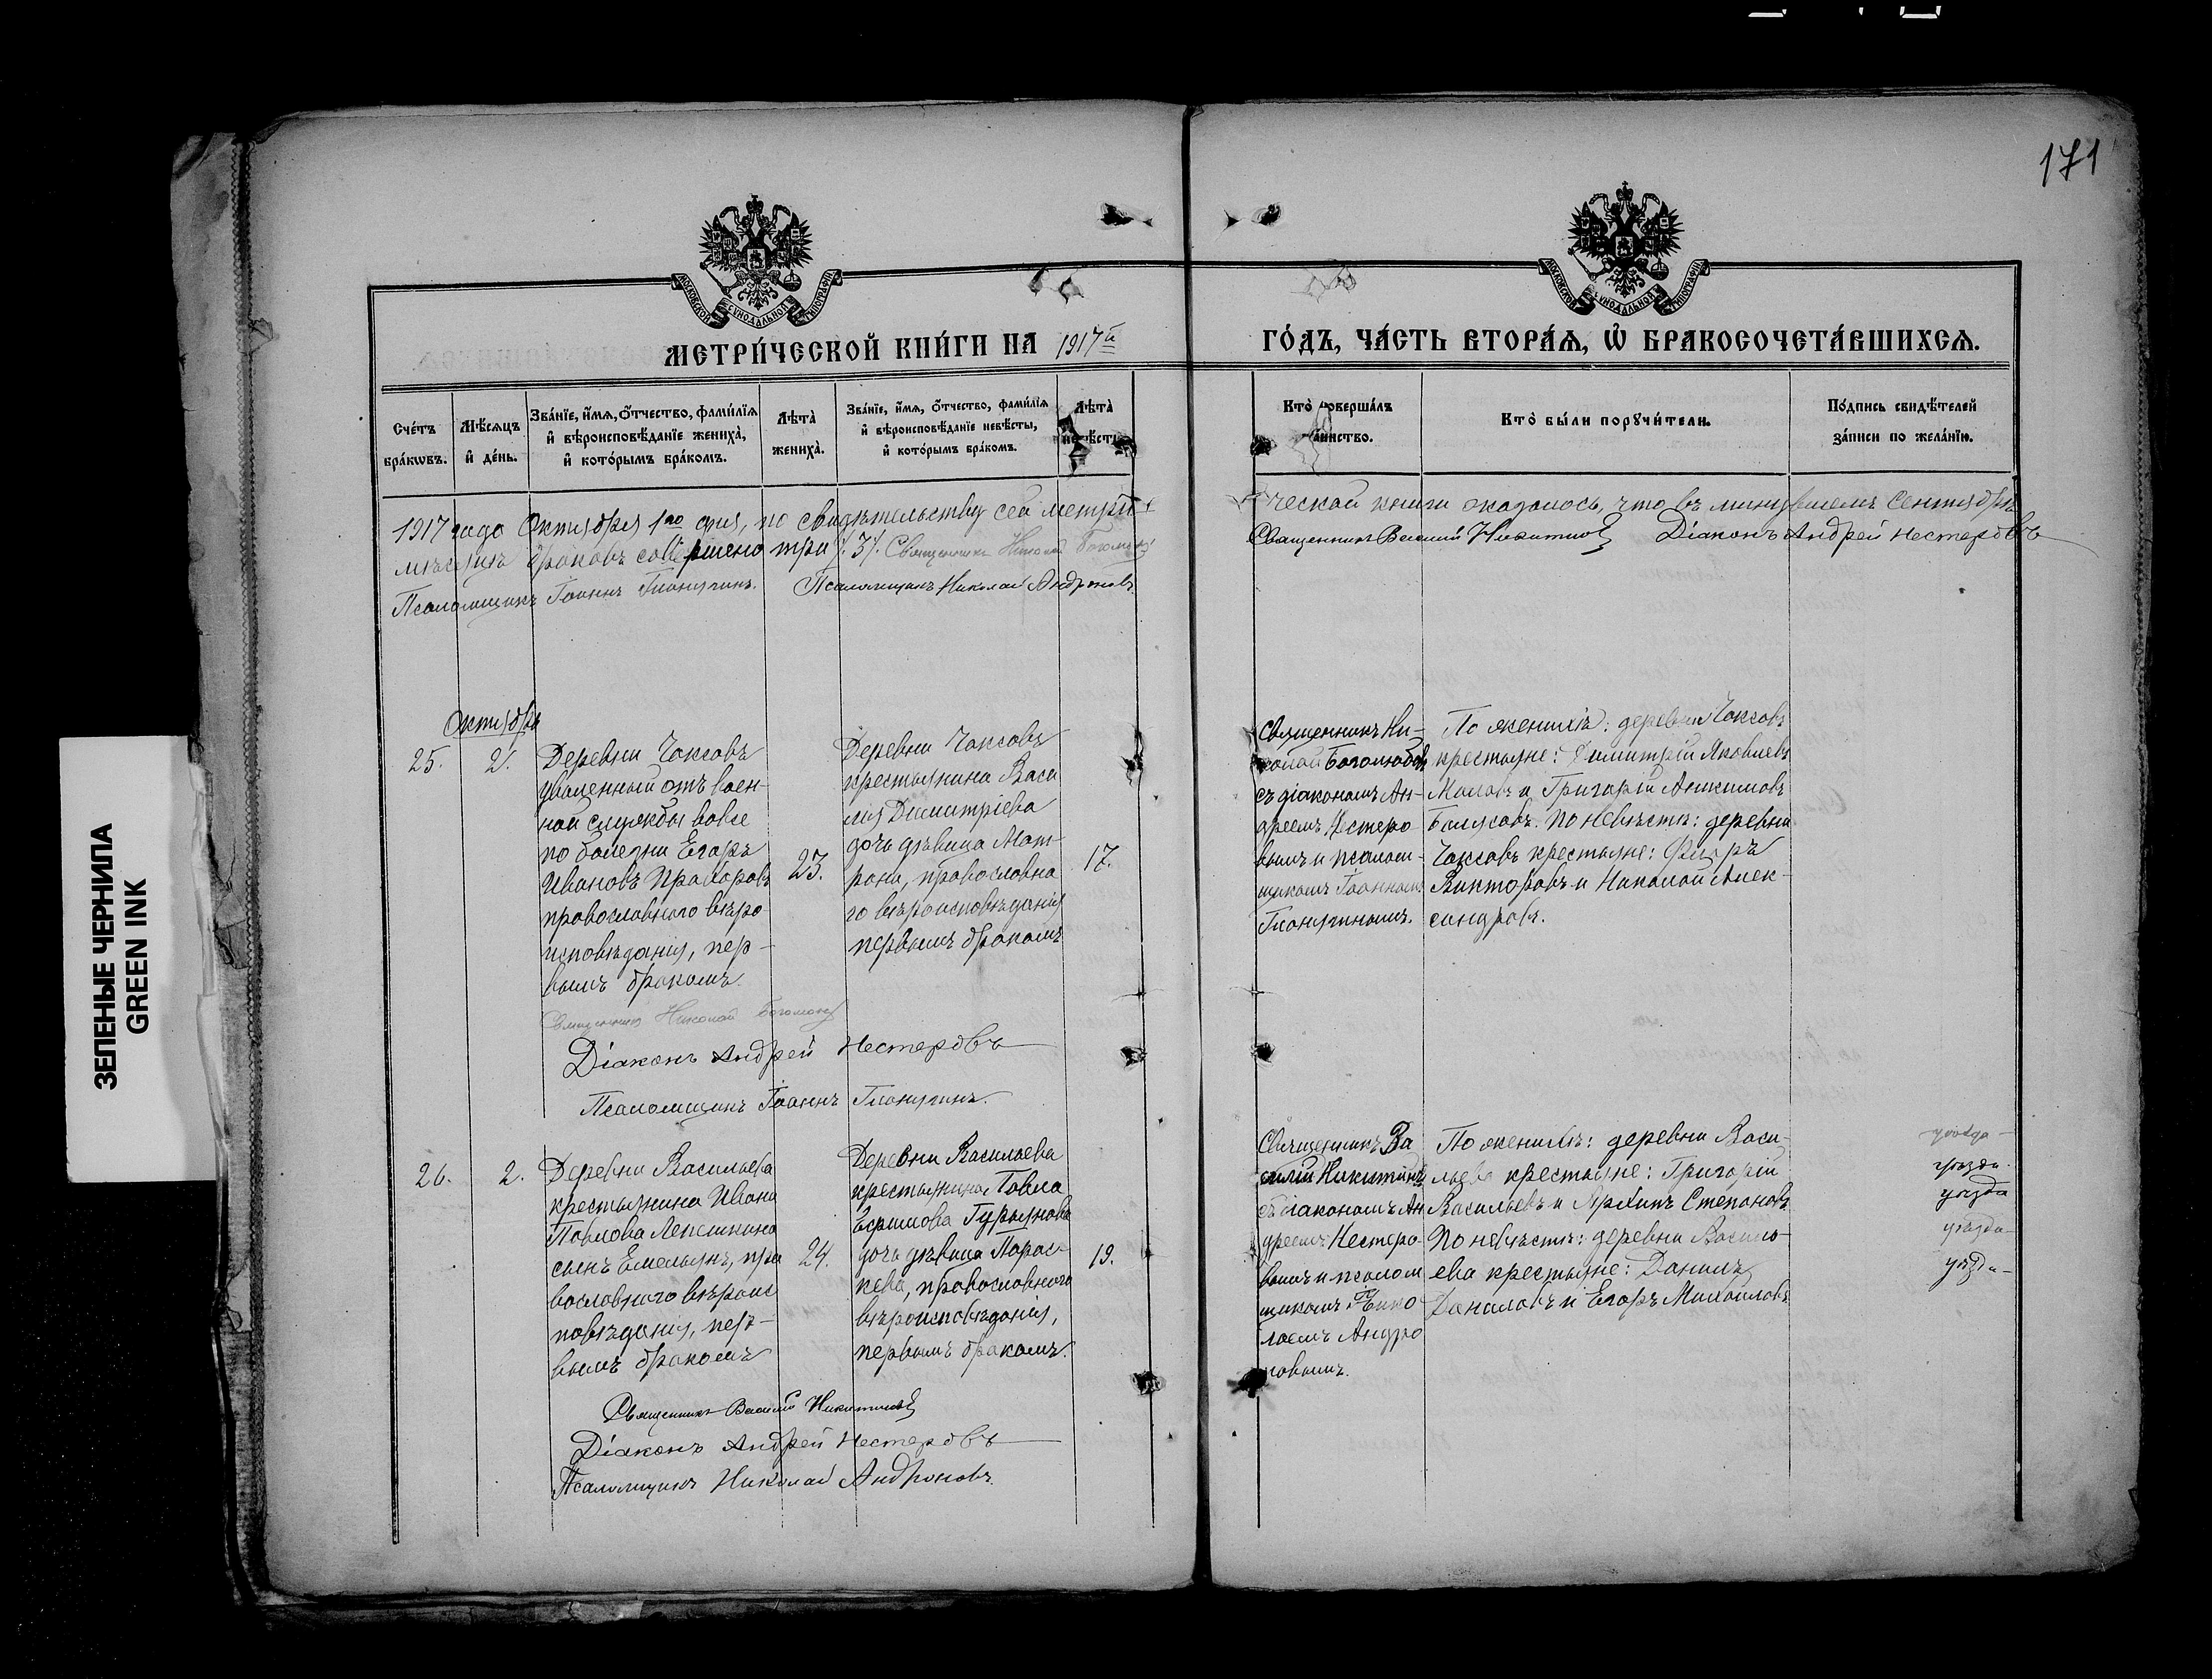 171
МОСКОВСКОЙ СѴНОДАЛЬНОЙ ТИПОГРАФІИ
МОСКОВСКОЙ СѴНОДАЛЬНОЙ ТИПОГРАФІИ
МЕТРИ́ЧЕСКОЙ КНИ́ГИ НА 1917й
ГО́ДЪ, ЧА́СТЬ ВТОРА́Я, Ѡ҆ БРАКОСОЧЕТА́ВШИХСѦ.
Сче́тъ бра́кѡвъ.
Мѣ́сѧцъ и҆ де́нь.
Зва́нїе, и҆́мѧ, ѻ҆́тчество, фами́лїѧ
и҆ вѣроисповѣ́данїе жениха̀,
и҆ кото́рымъ бра́комъ.
Лѣта̀ жениха̀.
Зва́нїе, и҆́мѧ, ѻ҆́тчество, фами́лїѧ
и҆ вѣроисповѣ́данїе невѣ́сты,
и҆ кото́рымъ бра́комъ.
Лѣта̀ невѣ́сты
Кто̀ соверша́лъ таинство.
Кто̀ бы́ли порꙋчи́тели.
По́дпись свидѣ́телей
за́писи по жела́нїю.
1917 года Октября 1го дня, по свидѣтельству сей метри-
ческой книги оказалось, что въ минувшемъ Сентябрѣ
мѣсяцѣ браковъ совершено три /.3/. Священникъ Николай
Священникъ Василий Никитинъ Діаконъ Андрей Нестеровъ
Псаломщикъ Іоаннъ Псаломщикъ Николай Андроновъ
Октябрь
25.
2.
Деревни Чаксовъ
уволенный отъ воен-
ной службы вовсе
по болезни Егоръ
Ивановъ Прохоровъ
православнаго вѣро
исповѣданія, пер-
вымъ бракомъ.
23.
Деревни Чаксовъ
крестьянина Васи
лія Димитріева
дочь дѣвица Мат-
рона, православна
го вѣроисповѣданія
первымъ бракомъ
17.
Священникъ Ни-
колай Боголюбовъ
съ діакономъ Ан-
дреемъ Нестеро
вымъ и псалом-
щикомъ Іоанномъ
По женихѣ: деревни Чаксовъ
крестьяне: Димитрій Яковлевъ
и Григорій
По невѣстѣ: деревни
Чаксовъ крестьяне: Ѳедоръ
Викторовъ и Николай Алек-
сандровъ.
Священникъ Николай
Діаконъ Андрей Нестеровъ
Псаломщикъ Іоаннъ
26.
2.
Деревни Васильева
крестьянина Ивана
Павлова Лепешкина
сынъ Емельянъ, пра
вославнаго вѣроис
повѣданія, пер-
вымъ бракомъ
24.
Деревни Васильева
крестьянина Павла
Ефимова Гурьянова
дочь дѣвица Парас-
кева, православнаго
вѣроисповѣданія,
первымъ бракомъ.
19.
Священникъ Ва
силій Никитинъ
съ діакономъ Ан
дреемъ Нестеро-
вымъ и псалом
щикомъ Нико
лаемъ Андро
новымъ.
По женихѣ: деревни Васи-
льева крестьяне: Григорій
Васильевъ и Архипъ Степановъ
По невѣстѣ: деревни Василь-
ева крестьяне: Данилъ
Даниловъ и Егоръ Михаиловъ
уѣзда
уѣзда
уѣзда
уѣзда
уѣзда
Священникъ Василий Никитинъ
Діаконъ Андрей Нестеровъ
Псаломщикъ Николай Андроновъ.
ЗЕЛЕНЫЕ ЧЕРНИЛА
GREEN INK